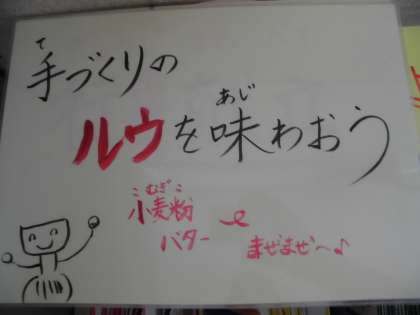 て
手づくりの
あじ
ルウを味わおう
こむぎこ
小麦粉と
バター
まぜまぜ〜♪